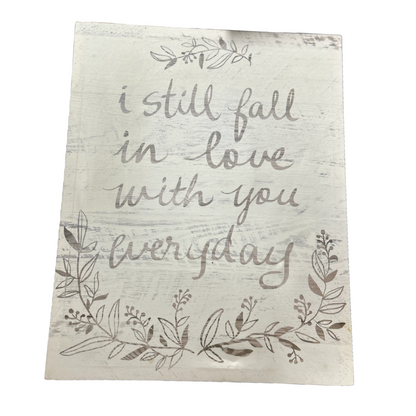 i still fall
in love
with you
everyday